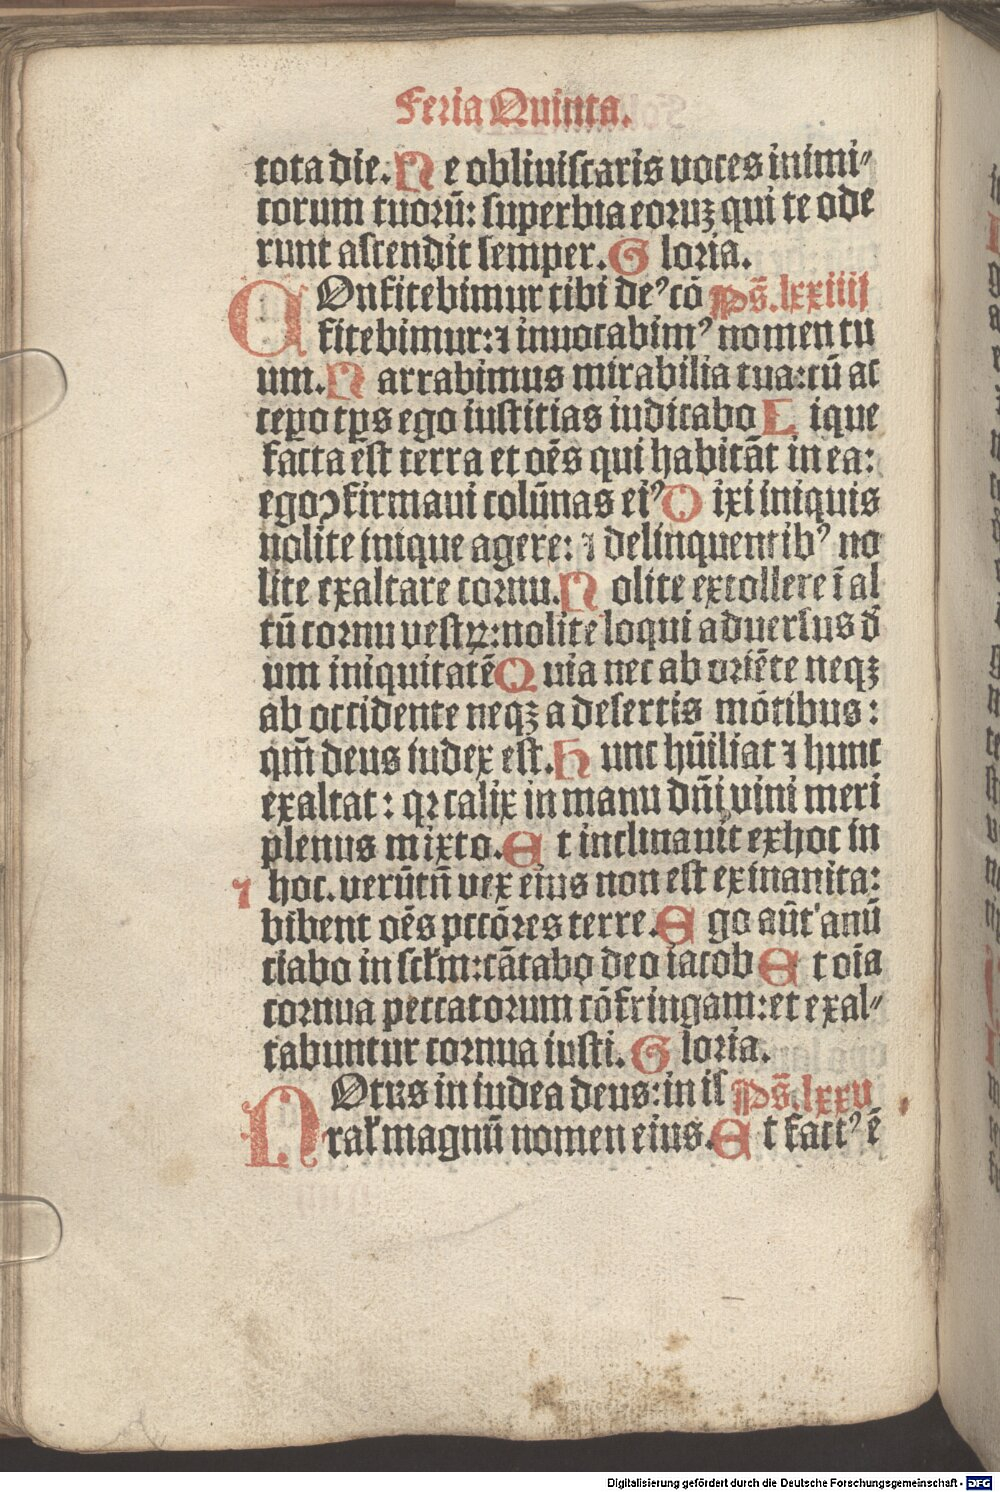 Feria Quinta.
tota die. Ne obliuiscaris voces inimi-
corum tuorū: superbia eoruꝫ qui te ode
runt ascendit semper. Gloria.
COnfitebimur tibi deꝰ cō Ps̄. lxxiiij
fitebimur: ⁊ inuocabimꝰ nomen tu
um. Narrabimus mirabilia tua: cū ac
cepo tp̄s ego iustitias iudicabo Lique
facta est terra et oēs qui habitāt in ea:
ego ↄfirmaui colūnas eiꝰ Dixi iniquis
nolite inique agere: ⁊ delinquentibꝰ no
lite exaltare cornu. Nolite extollere ī al
tū cornu vestꝝ: nolite loqui aduersus d̄
um iniquitatē Quia nec ab oriēte neqꝫ
ab occidente neqꝫ a desertis mōtibus:
qm̄ deus iudex est. Hunc hūiliat ⁊ hunc
exaltat: qꝛ calix in manu dn̄i vini meri
plenus mixto. Et inclinauit ex hoc in
⁊ hoc. verūtn̄ vex eius non est exinanita:
bibent oēs pccōres terre. Ego aūt anū
ciabo in scł'm: cātabo deo iacob Et oīa
cornua peccatorum cōfringam: et exal-
tabuntur cornua iusti. Gloria.
NOtus in iudea deus: in is Ps̄. lxxv
rał magnū nomen eius. Et factꝰ ē
Digitalisierung gefördert durch die Deutsche Forschungsgemeinschaft - DFG